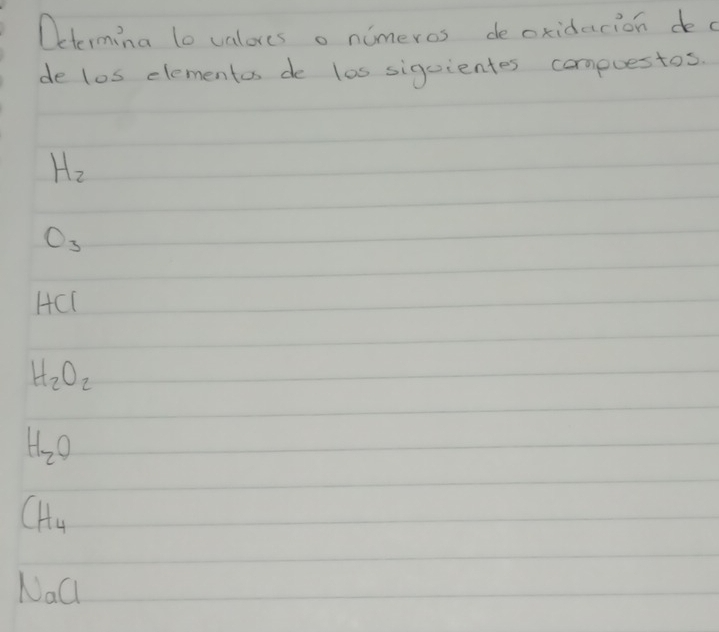 Determina lo valores o números de oxidación de
de los elementos de los siguientes compuestos.
H₂
O₃
HCl
H₂O₂
H₂O
CH₄
NaCl